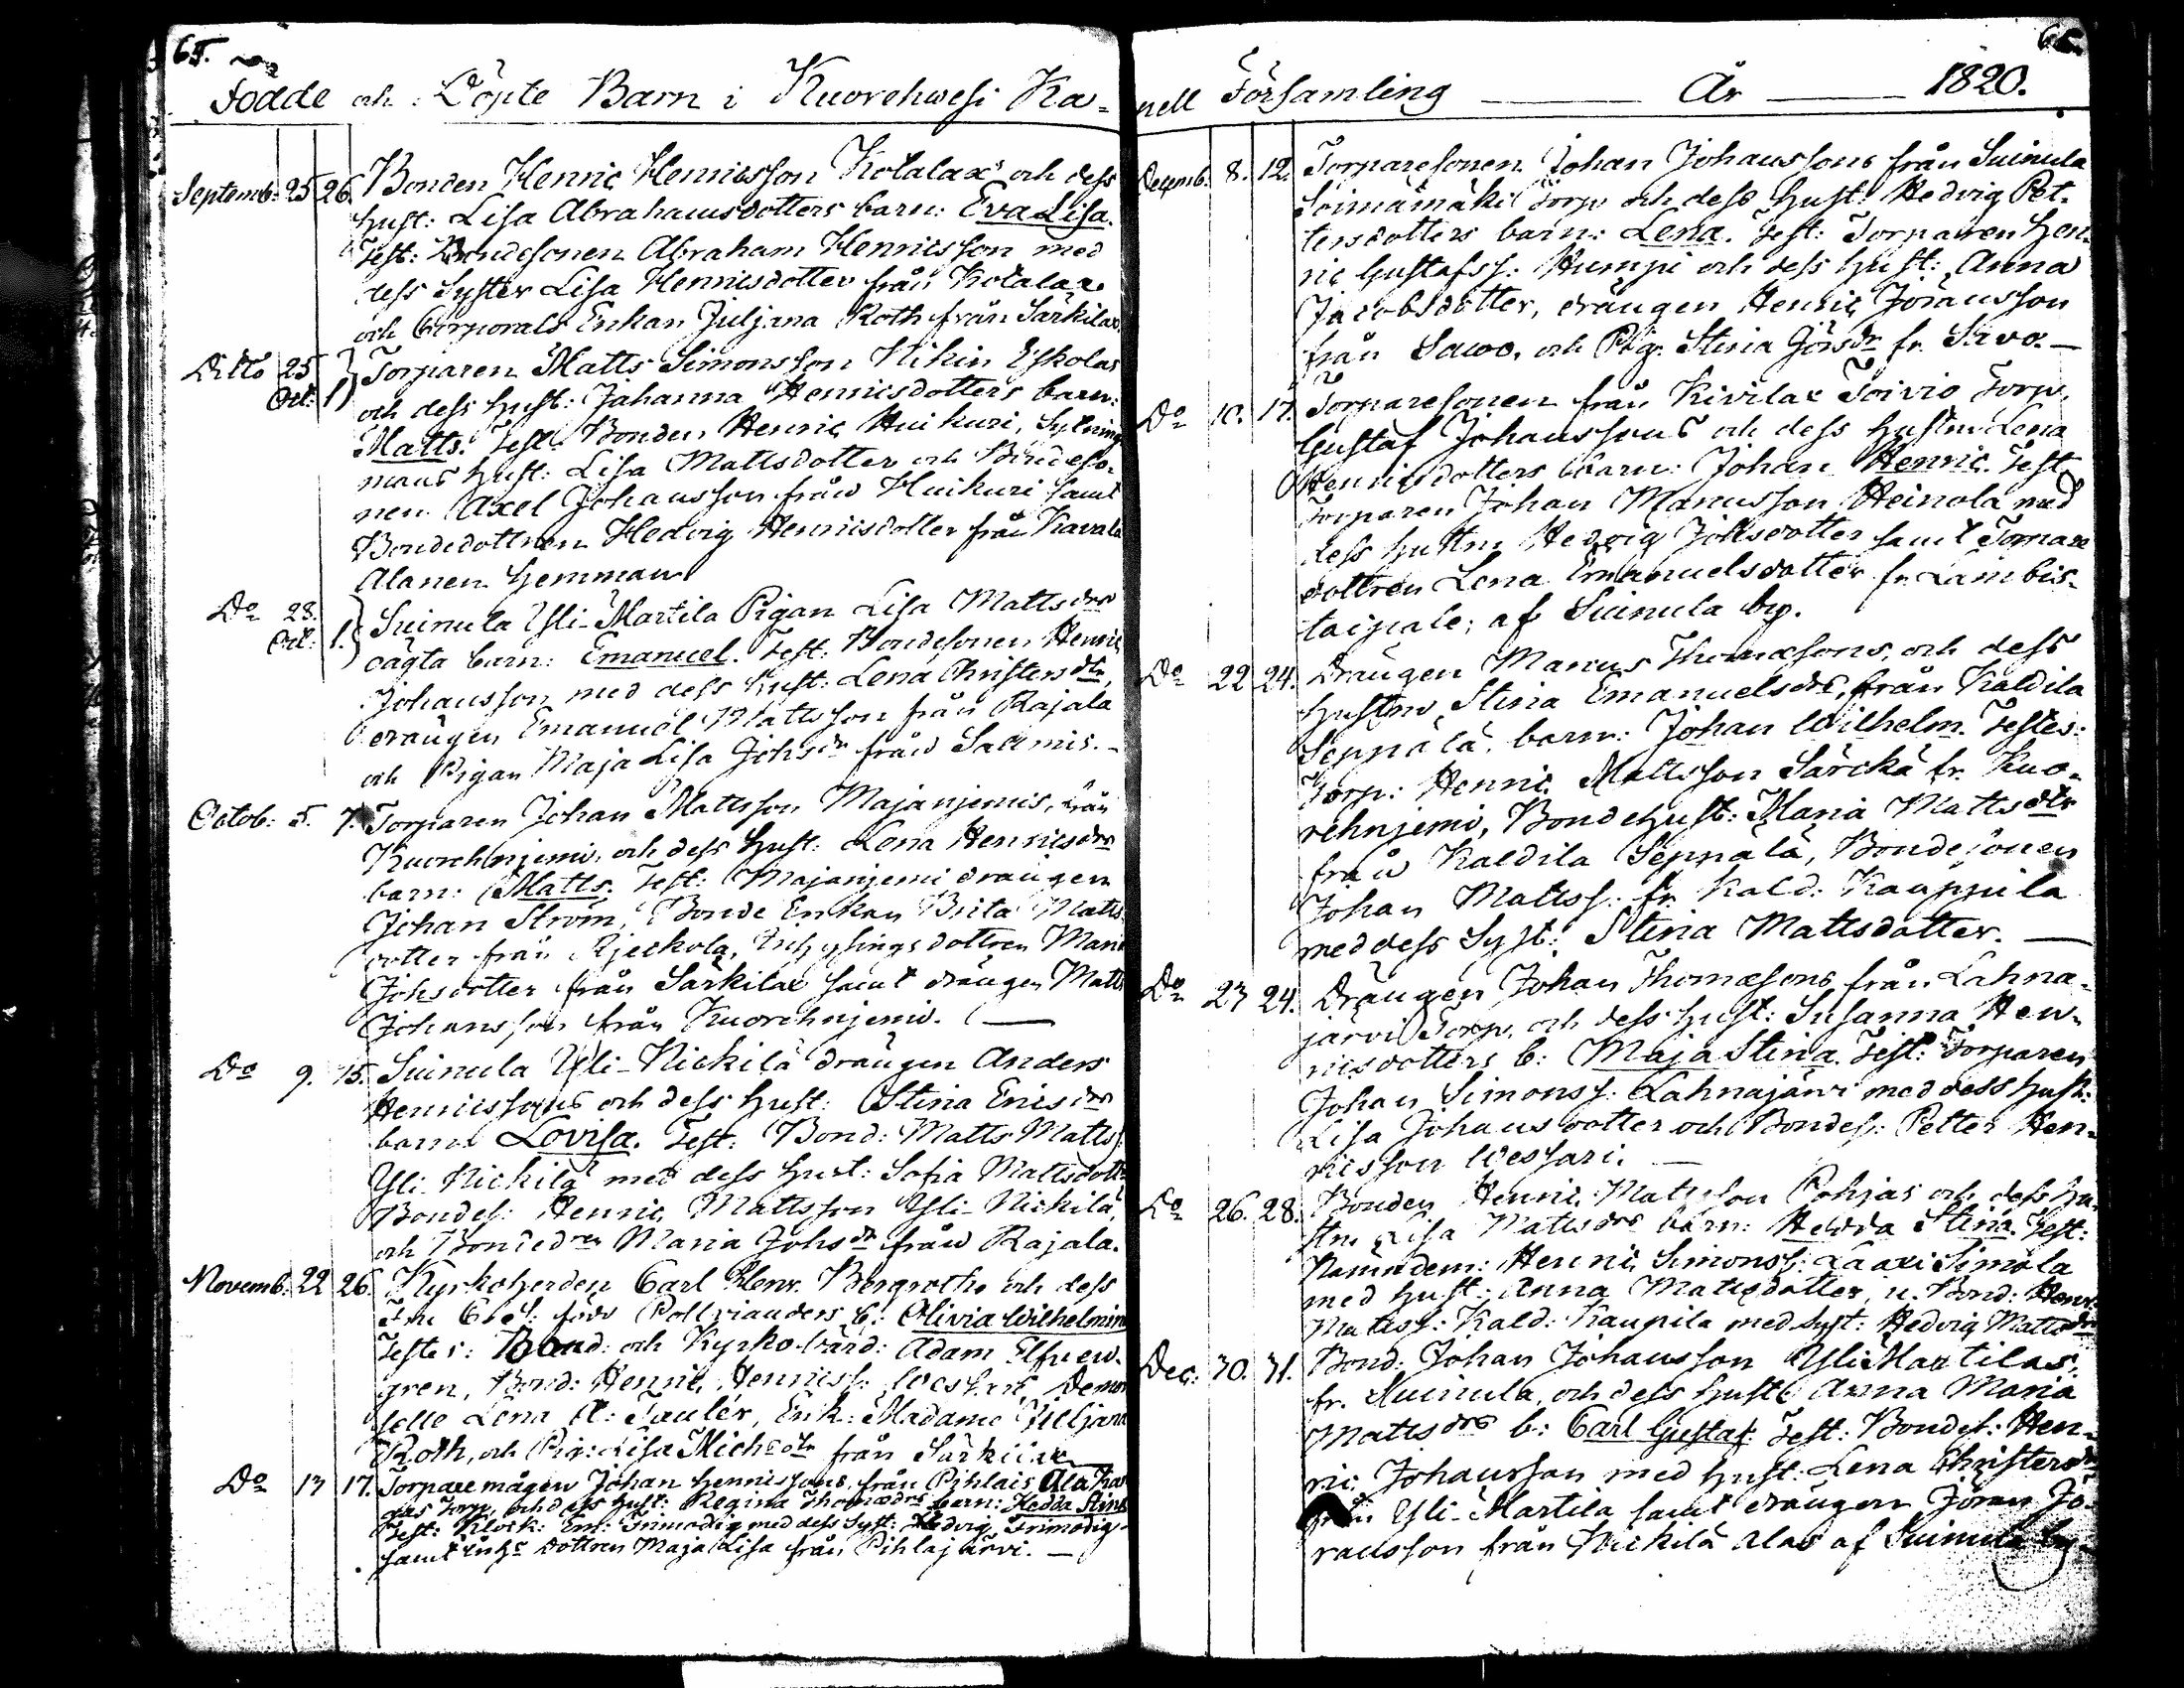 65.
Födde och Döpte Barn i Kuorehwesi Ka-
Septemb: 25 26. Bonden Henric Henricsson Kotalax's och dess
hust: Lisa Abrahamsdotters barn: Eva Lisa.
Test: Bondesonen Abraham Henricsson med
dess Syster Lisa Henricsdotter från Kotalax.
och Corporals Enkan Juljana Roth från Särkilax.
Ditto 25 Torparen Matts Simonsson Hikin Eskolas
Oct: 1 och dess hust: Johanna Henricsdotters barn:
Matts. Test: Bonden Henric Huikuri, Sytning
mans hust: Lisa Mattsdotter och Bondeso-
nen Axel Johansson från Huikuri samt
Bondedottren Hedvig Henricsdotter från Kavala
Alanen hemman
Do 28. Suinula Yli-Martila Pigan Lisa Mattsdrs
Oct: 1. oägta barn: Emanuel. Test: Bondesonen Henric
Johansson med dess hust: Lena Christersdtr,
drängen Emanuel Mattsson från Rajala
och Pigan Maja Lisa Johsdr från Salmis.
Octob: 5. 7. Torparen Johan Mattsson Majanjemis, från
Kuorehnjemi, och dess hust: Lena Henricsdrs
barn: Matts. Test: Majanjemi drängen
Johan Ström, Bonde Enkan Brita Matts
dotter från Äjeckola, dottren Maria
Johsdotter från Särkilax samt drängen Matts
Johansson från Kuorehnjemi.
Do 9. 15. Suinula Yli-Nickilä drängen Anders
Henricssons och dess hust: Stina Ericsdrs
barn Lovisa. Test: Bond: Matts Mattss:
Yli-Nickilä med dess hust: Sofia Mattsdottr
Bondes: Henric Mattsson Yli-Nickilä,
och Bondedren Maria Johsdr från Rajala.
Novemb: 22 26. Kyrkoherden Carl Henr. Bergroths och dess
född Pollvianders b: Olivia Wilhelmina
Testes: Bond: och Kyrko-värd: Adam Elfwen-
gren, Bond: Henric Henricss: Wessari, Demoi
selle Lena A: Tauler, Enk: Madame Juljana
Roth, och Pig: Lisa Michsdtr från Särkilax
Do 13 17. Torpare mågen Johan Henricssons, från Pihlais Ala
Torp, och dess hust: Regina Thomædrs barn: Hedda Stina
Test: Klock: Em: Frimodig med dess Syst: Hedvig Frimodig
samt dottren Maja Lisa från Pihlajärvi.
66.
pell Församling År 1820.
Decemb. 8. 12. Torparesonen Johan Johanssons från Suinula
Soimämäki Torp och dess hust: Hedvig Pet-
tersdotters barn: Lena. Test: Torparen Hen-
ric Gustafss: Humpi och dess hust: Anna
Jacobsdotter, drängen Henric Joransson
från Sawo, och Pig: Stina Görsdr fr. Savo.
Do 10. 17. Torparesonen från Kivilax Toivio Torp,
Gustaf Johanssons och dess hustru Lena
Henricsdotters barn: Johan Henric. Test:
Torparen Johan Manusson Heinola med
dess hustru Hedvig Johsdotter samt Torpare
dottren Lena Emanuelsdotter fr. Lambis-
taipale; af Suinula by.
Do 22 24. Drängen Manus Thomæsons, och dess
hustru Stina Emanuelsdrs, från Kaldila
Seppälä, barn: Johan Wilhelm. Testes:
Torp: Henric Mattsson Särckä fr. Kuo-
rehnjemi, Bondehust: Maria Mattsdtr
från Kaldila Seppälä, Bondesonen
Johan Mattss: fr. Kald: Kauppila
med dess Syst: Stina Mattsdotter.
Do 23 24. Drängen Johan Thomæsons från Lahna-
järvi Torp, och dess hust: Susanna Hen-
ricsdotters b: Maja Stina. Test: Torparen
Johan Simonss: Lahnajärvi med dess hust:
Lisa Johansdotter och Bondes: Petter Hen-
ricsson Wessari.
Do 26. 28. Bonden Henric Mattsson Pohjas och dess hu-
stru Lisa Mattsdrs barn: Hedda Stina. Test:
Nämndem: Henric Simonss: Laari Simola
med hust: Anna Mattsdotter, u. Bond: Henr:
Mattss: Kald: Kaupila med Syst: Hedvig Mattsdr
Dec: 30. 31. Bond: Johan Johansson Yli Martilas,
fr. Suinula, och dess hust: Anna Maria
Mattsdrs b: Carl Gustaf. Test: Bondes: Hen-
ric Johansson med hust: Lena Christersdr
från Yli-Martila samt drängen Jöran Jö-
ransson från Nickilä Alas af Suinula by.